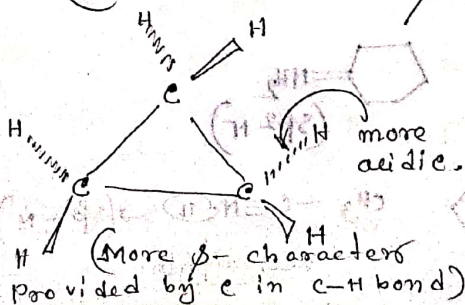 H
H
C
H
H
more
acidic.
C
C
H
H
(More s- character
provided by C in C-H bond)